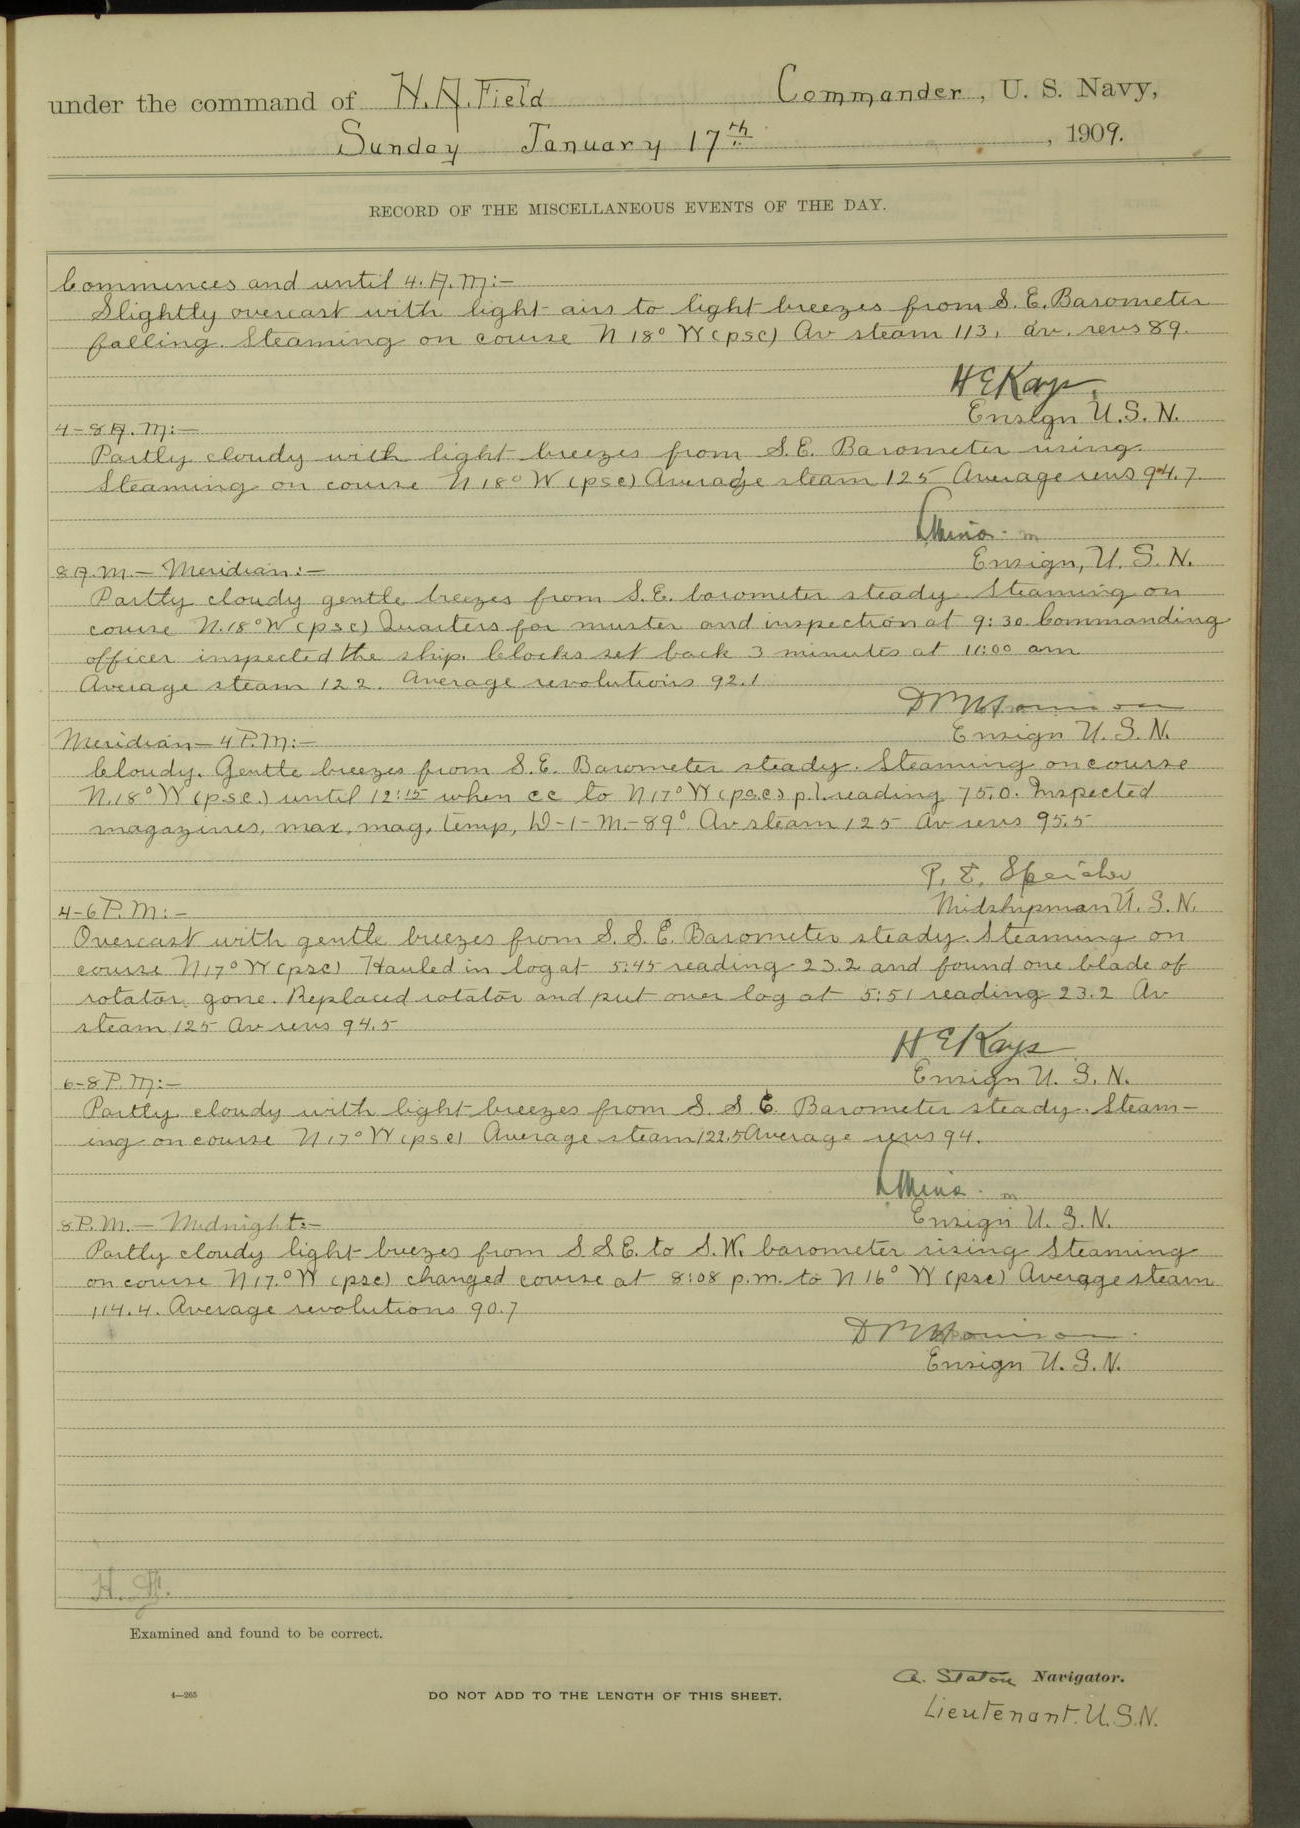 under the command of H. A. Field Commander, U. S. Navy,
Sunday January 17th, 1909.
RECORD OF THE MISCELLANEOUS EVENTS OF THE DAY.
Commences and until 4. A. M:-
Slightly overcast with light airs to light breezes from S. E. Barometer
falling. Steaming on course N 18° W (psc) Av steam 113, av. revs 89.
H E Kays
Ensign U.S. N.
4-8 A. M:-
Partly cloudy with light breezes from S. E. Barometer rising.
Steaming on course N 18° W (psc) Average steam 125 Average revs 94.7.
Ensign, U. S. N.
8 A. M. - Meridian:-
Partly cloudy gentle breezes from S.E. barometer steady. Steaming on
course N. 18° W (psc) Quarters for muster and inspection at 9:30. Commanding
officer inspected the ship. Clocks set back 3 minutes at 11:00 am
Average steam 122. Average revolutions 92.1
Ensign U. S. N.
Meridian - 4 P. M:-
Cloudy. Gentle breezes from S. E. Barometer steady. Steaming on course
N. 18° W (p.s.c.) until 12:15 when cc to N 17° W (p.s.c) p.l. reading 75.0. Inspected
magazines, max, mag, temp, D-1-M.-89° Av steam 125 Av revs 95.5
P. E. Speicher
Midshipman U. S. N.
4-6 P. M:-
Overcast with gentle breezes from S. S. E. Barometer steady. Steaming on
course N 17° W (psc) Hauled in log at 5:45 reading 23.2 and found one blade of
rotator gone. Replaced rotator and put over log at 5:51 reading 23.2 Av
steam 125 Av revs 94.5
H E Kays
Ensign U. S. N.
6-8 P. M:-
Partly cloudy with light breezes from S. S. E Barometer steady. Steam-
ing on course N 17° W (psc) Average steam 122.5 Average revs 94.
Ensign U. S. N.
8 P. M. - Midnight:-
Partly cloudy light breezes from S. S. E. to S. W. barometer rising Steaming
on course N 17.° W (psc) changed course at 8:08 p.m. to N 16° W (psc) Average steam
114.4. Average revolutions 90.7
Ensign U. S. N.
H. F.
Examined and found to be correct.
A. Staton Navigator.
4—265 DO NOT ADD TO THE LENGTH OF THIS SHEET.
Lieutenant. U. S. N.